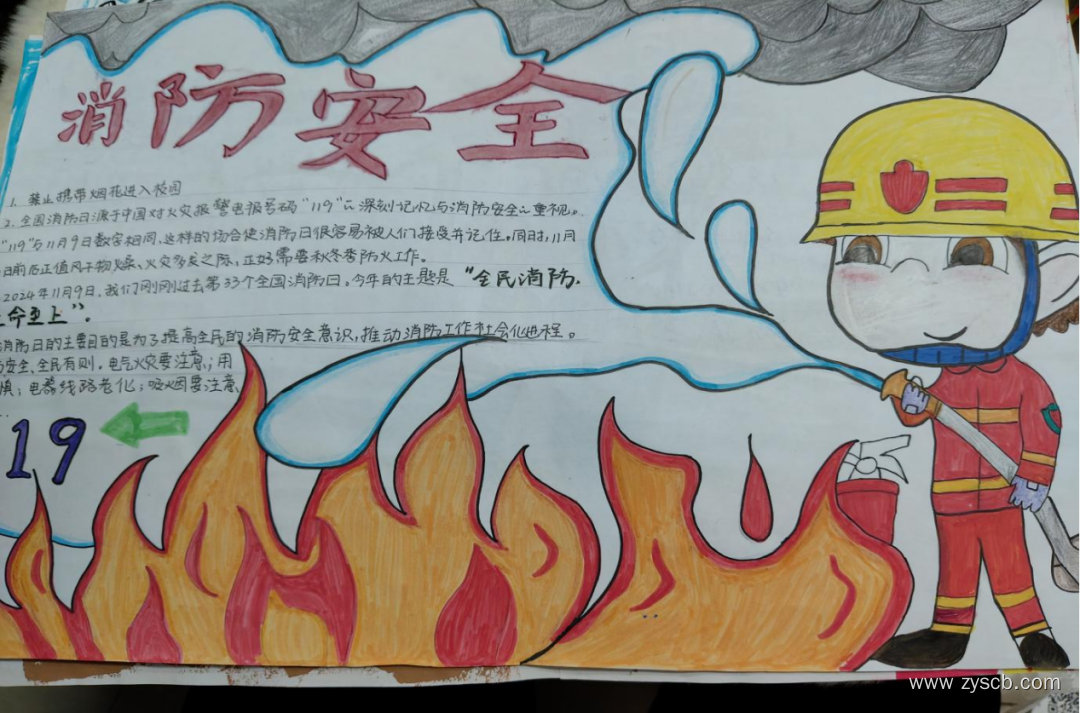 消防安全
1. 禁止携带烟花进入校园
2. 全国消防日源于中国对火灾报警电报号码"119"的深刻记忆与消防安全的重视。
"119"与11月9日数字相同,这样的场合使消防日很容易被人们接受并记住。同时,11月
日前后正值风干物燥、火灾多发之际,正好需要秋冬季防火工作。
2024年11月9日,我们刚刚过去第33个全国消防日。今年的主题是"全民消防、
命至上"。
消防日的主要目的是为了提高全民的消防安全意识,推动消防工作社会化进程。
安全、全民有则。电气火灾要注意,用
慎;电器线路老化;吸烟要注意,
19
www.zyscb.com